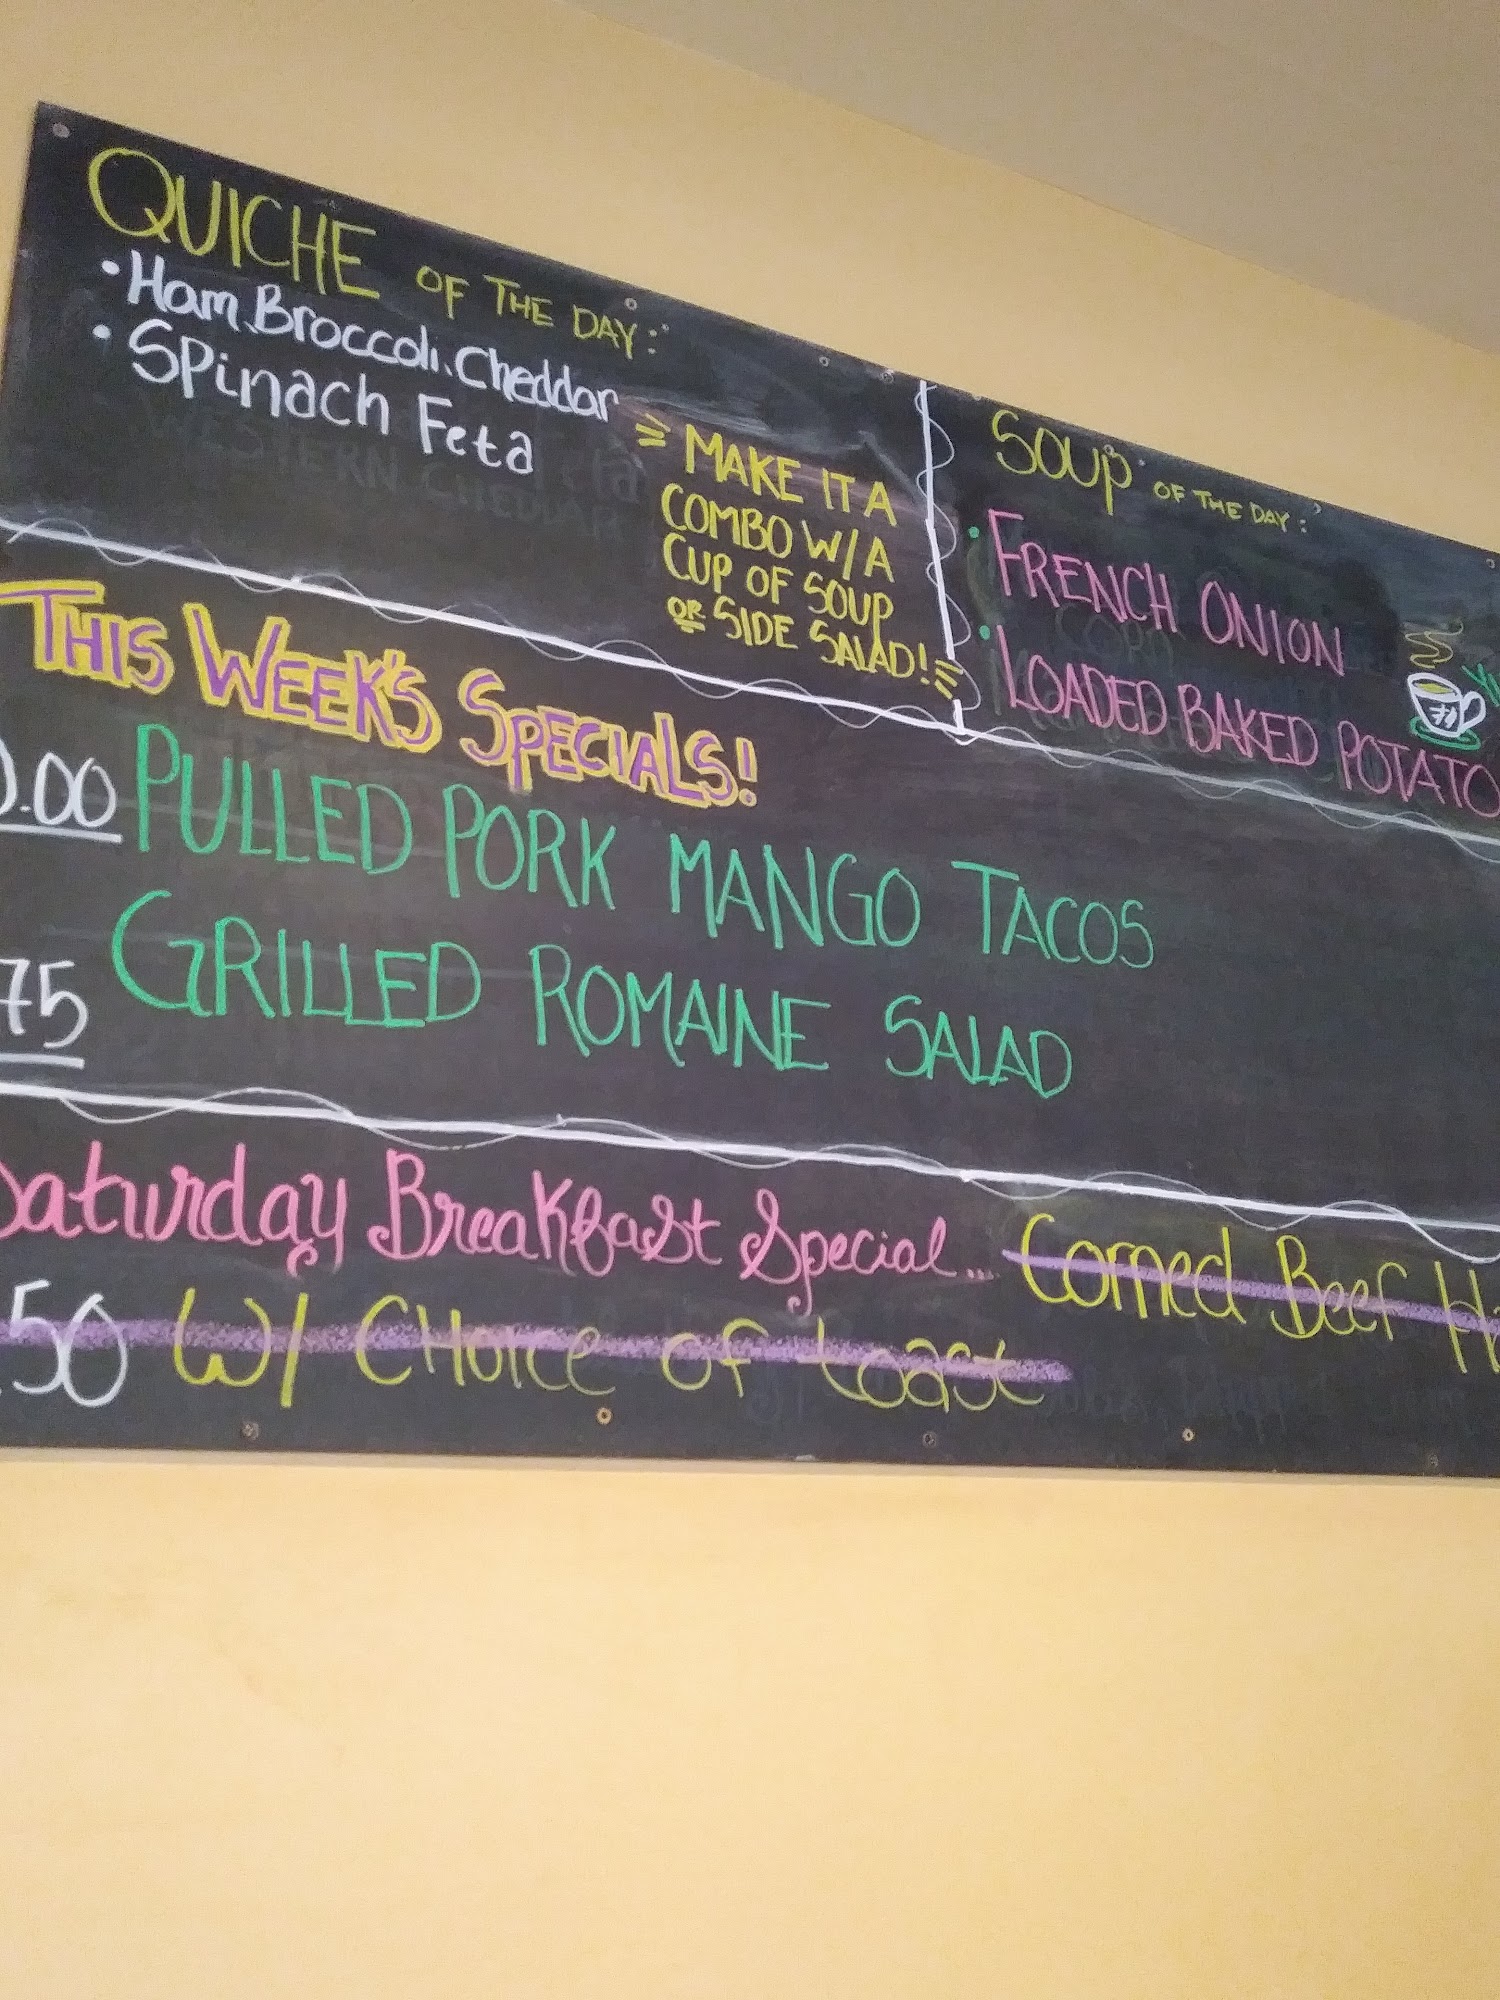 QUICHE OF THE DAY:
• Ham, Broccoli, Cheddar
• Spinach Feta
MAKE IT A
COMBO W/A
CUP OF SOUP
OR SIDE SALAD!
SOUP OF THE DAY:
• FRENCH ONION
• LOADED BAKED POTATO
THIS WEEK'S SPECIALS!
0.00 PULLED PORK MANGO TACOS
75 GRILLED ROMAINE SALAD
Saturday Breakfast Special... Corned Beef
.50 W/ CHoice of toast